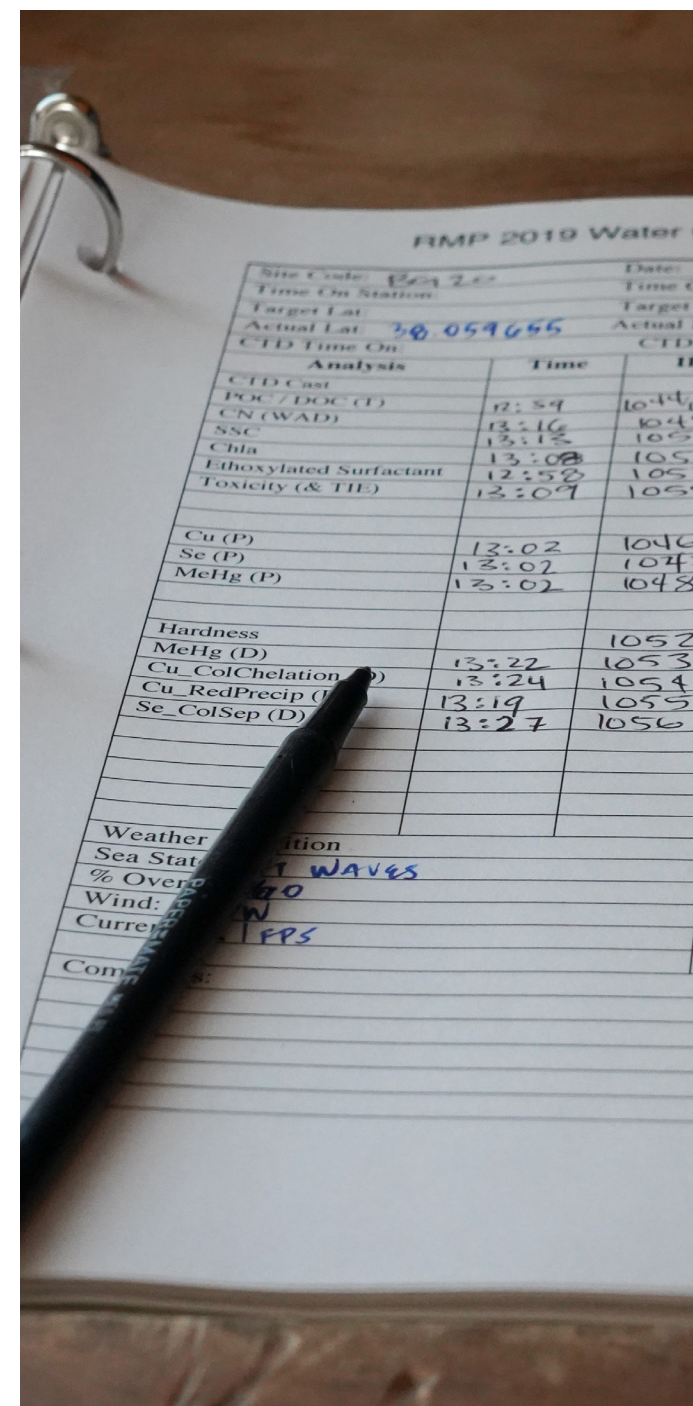 RMP 2019 Water
Site Code: BG20 Date:
Time On Station: Time
Target Lat: Target
Actual Lat: 38.059655 Actual
CTD Time On: CTD
Analysis Time
CTD Cast
POC / DOC (T) 12:59
CN (WAD) 13:16 104
SSC 13:13 105
Chla 13:08 105
Ethoxylated Surfactant 12:58 105
Toxicity (& TIE) 13:09 105
Cu (P) 13:02 1046
Se (P) 13:02 1047
MeHg (P) 13:02 1048
Hardness 1052
MeHg (D) 13:22 1053
Cu_ColChelation 13:24 1054
Cu_RedPrecip 13:19 1055
Se_ColSep (D) 13:27 1056
Weather
Sea WAVES
%
Wind: W
1 FPS
PAPERMATE